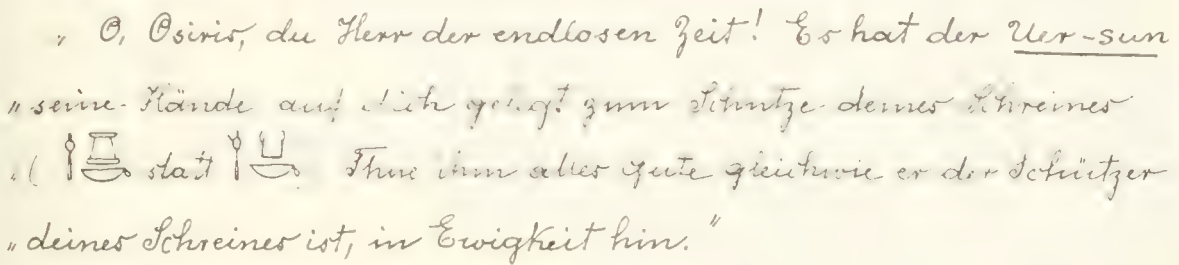 „ O, Osiris, du Herr der endlosen Zeit! Es hat der Uer-sun
„ seine Hände auf dich gelegt zum Schutze deines Schreines
„ ( statt Thue ihm alles gute gleichwie er der Schützer
„ deines Schreines ist, in Ewigkeit hin.“